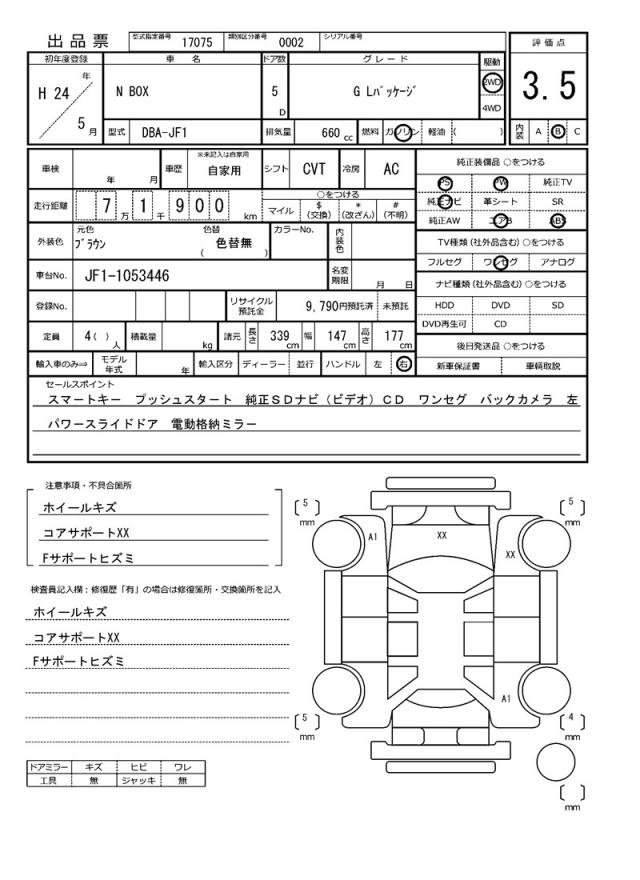 出品票 型式指定番号 17075 類別区分番号 0002 シリアル番号
初年度登録 車名 ドア数 グレード 駆動 評価点
H 24 年 N BOX 5 D G Lパッケージ 2WD 3.5
4WD
5 月 型式 DBA-JF1 排気量 660 cc 燃料 ガソリン 軽油 ( ) 内装 A B C
車検 年 月 車歴 ※未記入は自家用 自家用 シフト CVT 冷房 AC 純正装備品 ○をつける
PS PW 純正TV
走行距離 7 万 1 千 9 0 0 km ○をつける 純正ナビ 革シート SR
マイル $ (交換) * (改ざん) # (不明) 純正AW エアB ABS
外装色 元色 ブラウン 色替 色替無 ( ) カラーNo. 内装色 TV種類 (社外品含む) ○をつける
フルセグ ワンセグ アナログ
車台No. JF1-1053446 名変期限 月 日 ナビ種類 (社外品含む) ○をつける
登録No. リサイクル預託金 9,790円預託済 未預託 HDD DVD SD
DVD再生可 CD
定員 4 ( ) 人 積載量 kg 諸元 長さ 339 cm 幅 147 cm 高さ 177 cm 後日発送品 ○をつける
輸入車のみ⇒ モデル年式 年 輸入区分 ディーラー 並行 ハンドル 左 右 新車保証書 車輌取説
セールスポイント
スマートキー プッシュスタート 純正SDナビ(ビデオ)CD ワンセグ バックカメラ 左
パワースライドドア 電動格納ミラー
注意事項・不具合箇所
ホイールキズ
コアサポートXX
Fサポートヒズミ
検査員記入欄:修復歴「有」の場合は修復箇所・交換箇所を記入
ホイールキズ
コアサポートXX
Fサポートヒズミ
ドアミラー キズ ヒビ ワレ
工具 無 ジャッキ 無
[5] mm [5] mm
A1 XX XX
A1
[5] mm [4] mm
[ ] mm